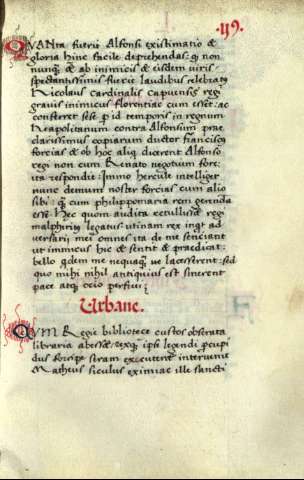 119.
QVANta fuerit Alfonsi existimatio &
gloria hinc facile deprehendas: q̃ non
nunq̃ & ab inimicis & eisdem viris
spectantissimis fuerit laudibus celebrata
Nicolaus cardinalis capuensis regi
gravis inimicus florentiae cum esset: ac
conferret sese p id temporis in regnum
Neapolitanum contra Alfonsum prae
clarissimus copiarum ductor franciscus
forcias & ob hoc aliq dicerent Alfonso
regi non cum Renato negotium fore:
ita respondit: Immo hercule intelliget
nunc demum noster forcias cum alio
sibi: q̃ cum philippo maria rem gerenda
esse. Hec quom audita retulisset regi
malphitus legatus: utinam rex inqt ad
versarii mei omnes ita de me sentiant
vt inimicus hic & sentit & praedicat:
bello qdem me nequaq̃ ne lacesserent: sed
quo mihi nihil antiquius est sinerent
pace atq; ocio perfrui:
Urbane.
QVM Regie bibliotece custos obserata
libraria abesset: rexq; ipse legendi pcupi
dus forcipe seram excuteret intervenit
Matheus siculus eximiae ille sancti